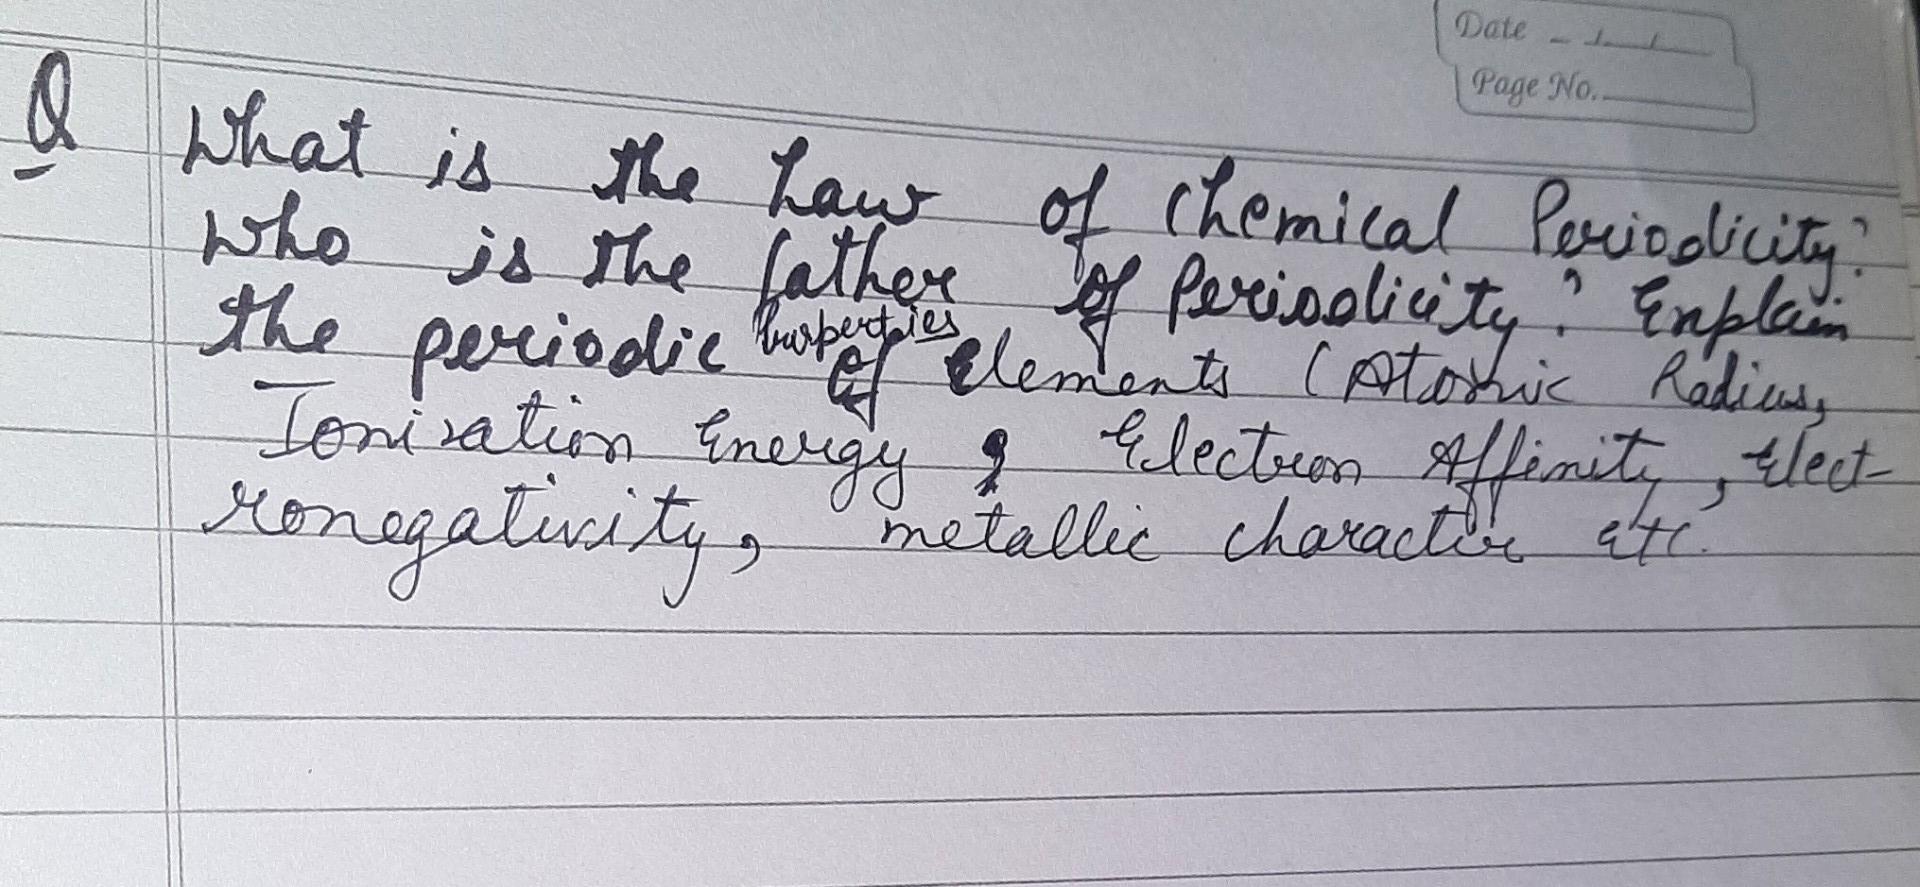 Date
Page No.
Q What is the Law of Chemical Periodicity?
Who is the father of Periodicity? Explain
the periodic purperties of elements (Atomic Radius,
Ionization Energy, Electron Affinity, Elect-
ronegativity, metallic character etc.